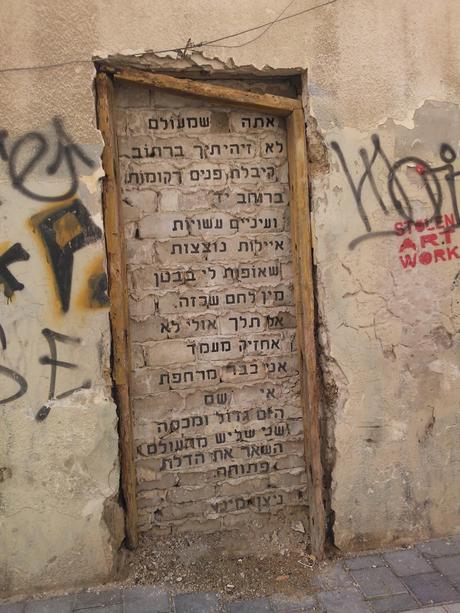 אתה שמעולם
לא זיהיתיך ברחוב
קיבלת פנים רקומות
ברוחב יד
ועיניים עשויות
איילות נוצצות
שאופות לי בבטן
מין לחם שכזה.
אל תלך אולי לא
אחזיק מעמד
אני כבר מרחפת
אי שם
הים גדול ומכסה
שני שליש מהעולם
השאר את הדלת
פתוחה.
ניצן מינץ
STOLEN
ART
WORK